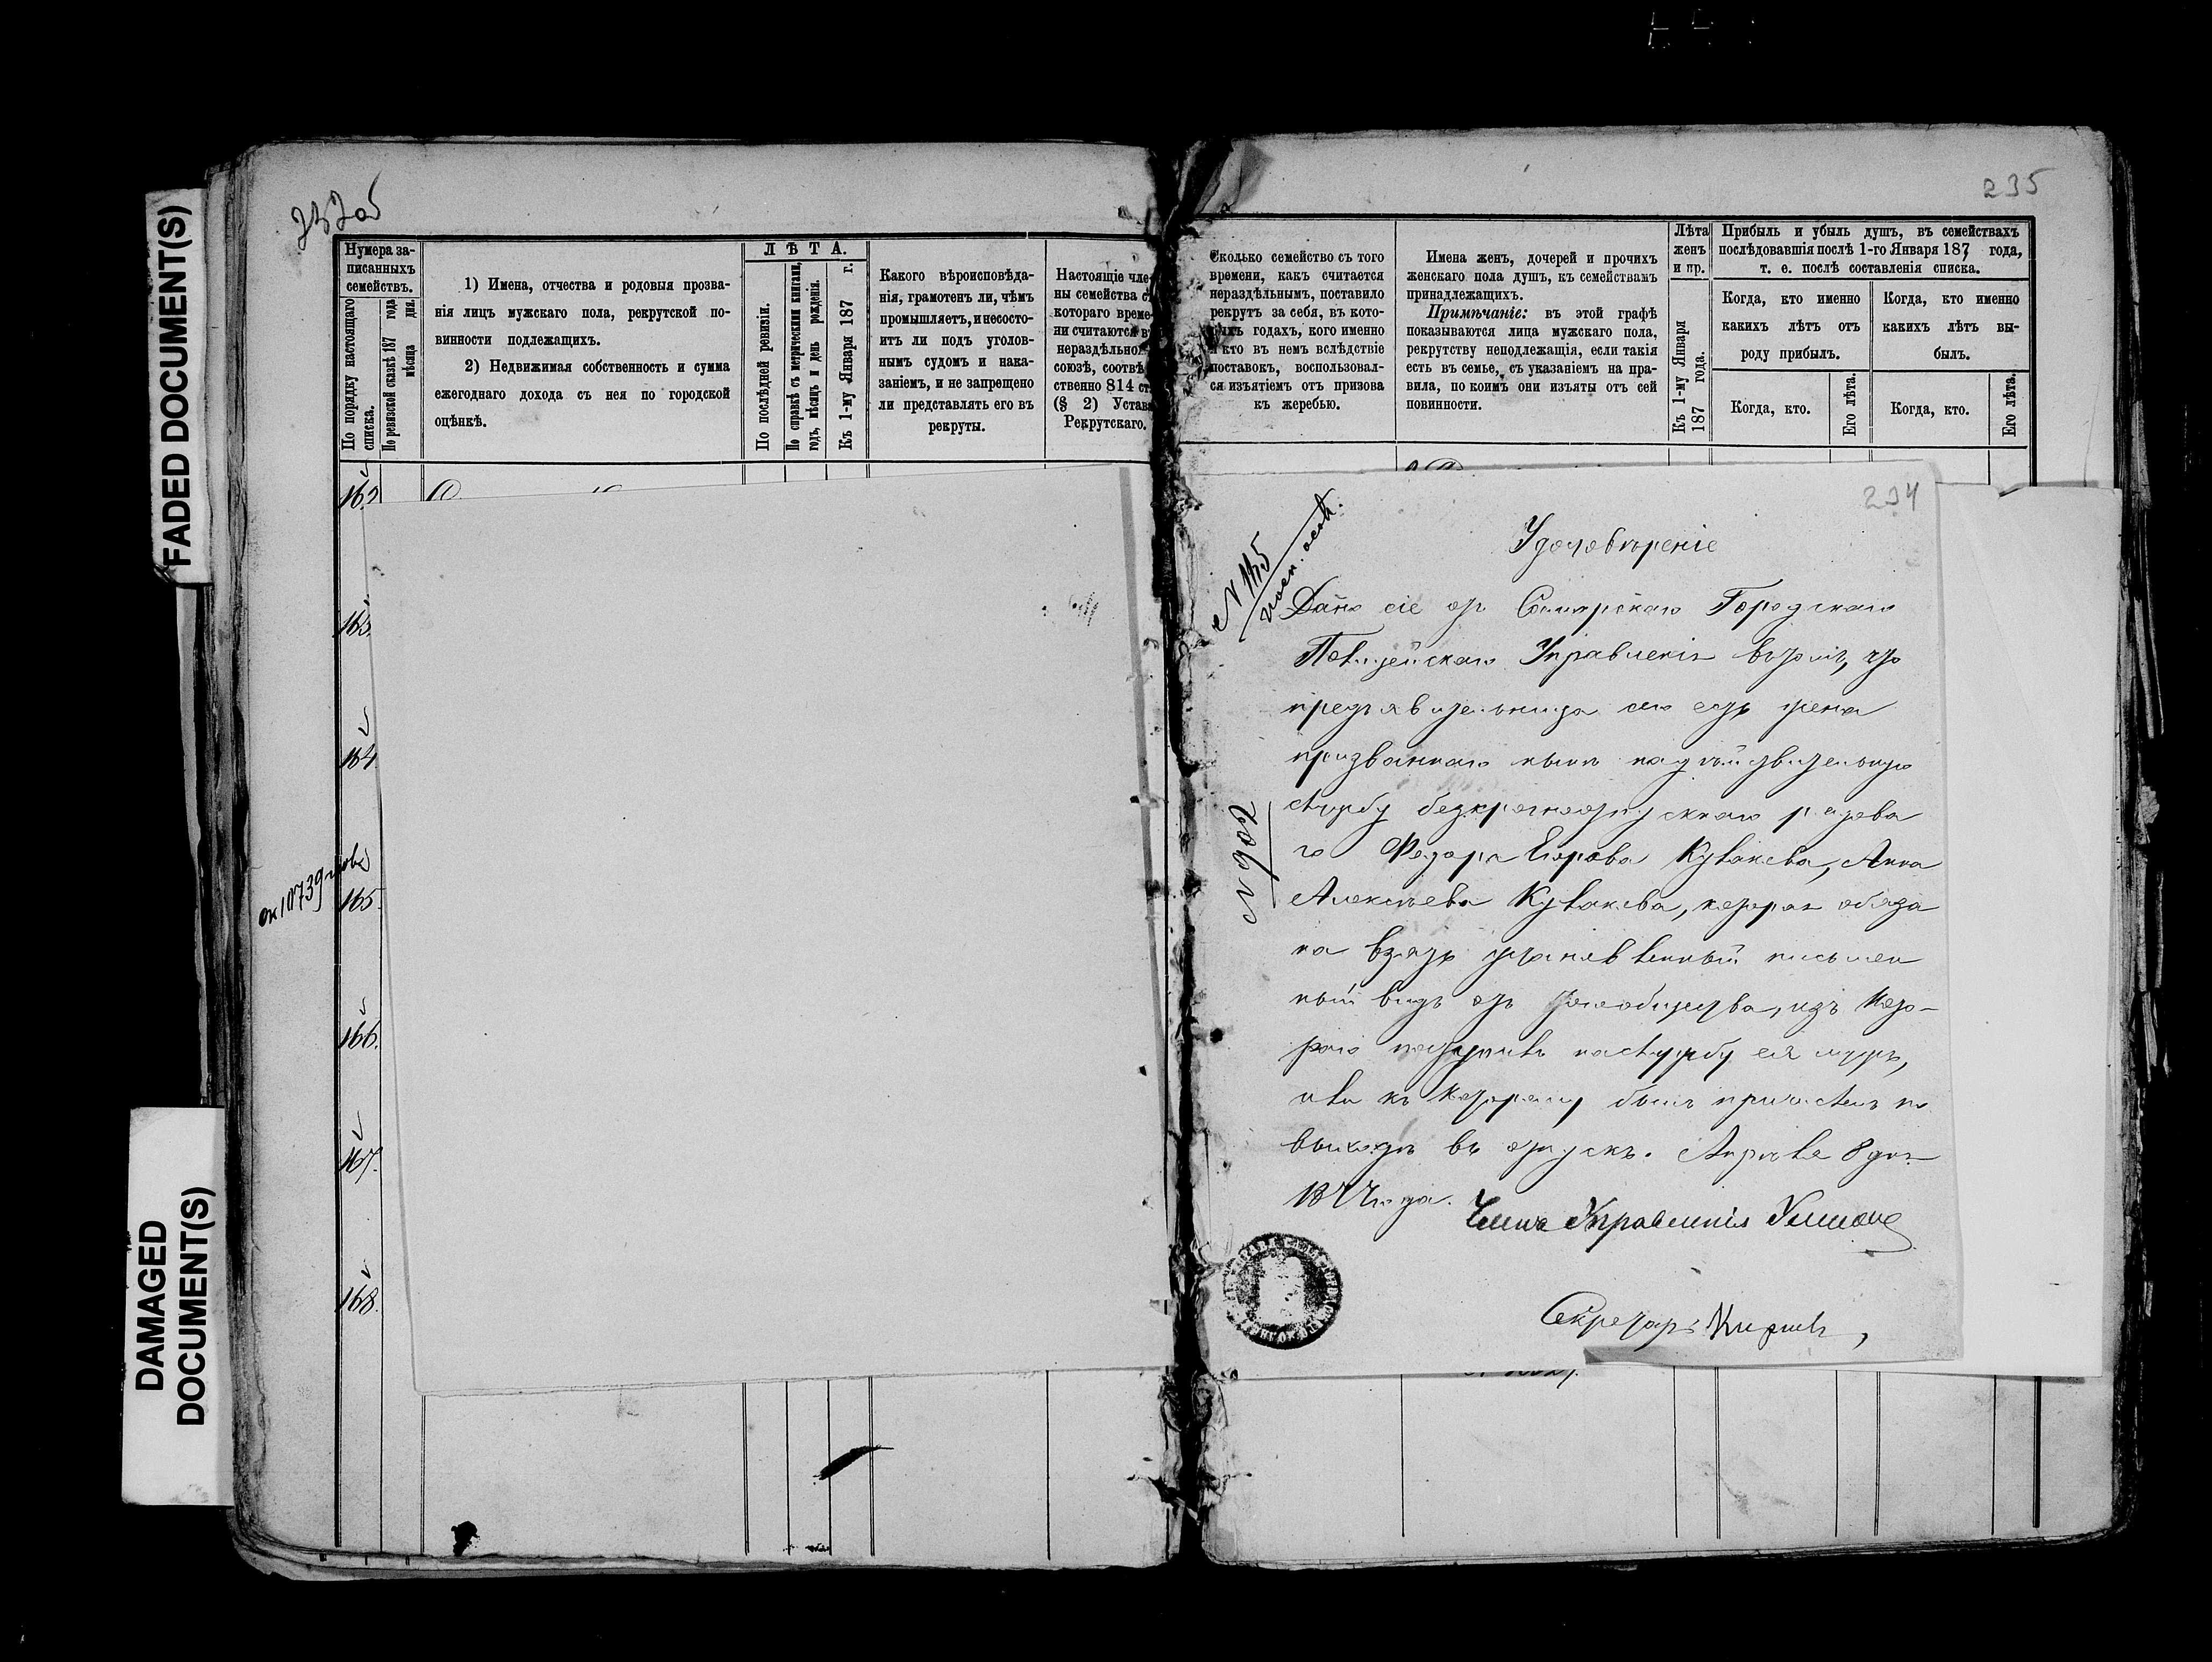 FADED DOCUMENT(S)
DAMAGED
DOCUMENT(S)
232об
Нумера за-
писанныхъ
семействъ.
По порядку настоящаго
списка.
По ревизской сказкѣ 187 года
мѣсяца дня.
1) Имена, отчества и родовыя прозва-
нія лицъ мужскаго пола, рекрутской по-
винности подлежащихъ.
2) Недвижимая собственность и сумма
ежегоднаго дохода съ нея по городской
оцѣнкѣ.
ЛѢТА.
По послѣдней ревизіи.
По справкѣ съ метрическими книгами,
годъ, мѣсяцъ и день рожденія.
Къ 1-му Января 187 г.
Какого вѣроисповѣда-
нія, грамотенъ ли, чѣмъ
промышляетъ, и несосто-
итъ ли подъ уголов-
нымъ судомъ и нака-
заніемъ, и не запрещено
ли представлять его въ
рекруты.
Настоящіе чле-
ны семейства с
котораго време-
ни считаются в
нераздѣльно
союзѣ, соотвѣ
ственно 814 ст
(§ 2) Устав
Рекрутскаго.
162
163.
164
165.
166.
167.
168.
235
Сколько семейство съ того
времени, какъ считается
нераздѣльнымъ, поставило
рекрутъ за себя, въ кото-
рыхъ годахъ, кого именно
и кто въ немъ вслѣдствіе
поставокъ, воспользовал-
ся изъятіемъ отъ призова
къ жеребью.
Имена женъ, дочерей и прочихъ
женскаго пола душъ, къ семействамъ
принадлежащихъ.
Примѣчаніе: въ этой графѣ
показываются лица мужскаго пола,
рекрутству неподлежащія, если такія
есть въ семье, съ указаніемъ на пра-
вила, по коимъ они изъяты отъ сей
повинности.
Лѣта
женъ
и пр.
Къ 1-му Января
187 года.
Прибыль и убыль душъ, въ семействахъ
послѣдовавшія послѣ 1-го Января 187 года,
т. е. послѣ составленія списка.
Когда, кто именно
какихъ лѣтъ отъ
роду прибылъ.
Когда, кто именно
какихъ лѣтъ вы-
былъ.
Когда, кто.
Его лѣта.
Когда, кто.
Его лѣта.
234
Удостовѣреніе
Дано сіе отъ Самарскаго Городскаго
Полицейскаго Управленія въ томъ, что
предъявительница сего есть жена
призваннаго нынѣ на дѣйствительную
службу безсрочноотпускнаго рядова
го Федора Егорова Кулакова, Анна
Алексѣева Кулакова, которая обяза
на взять установленный письмен
ный видъ отъ того общества, изъ кото-
раго поступилъ на службу ея мужъ,
или къ которому былъ причисленъ по
выходѣ въ отпускъ. Апрѣля 8 дня
1877 года.
№ 902
Членъ Управленія
Секретарь